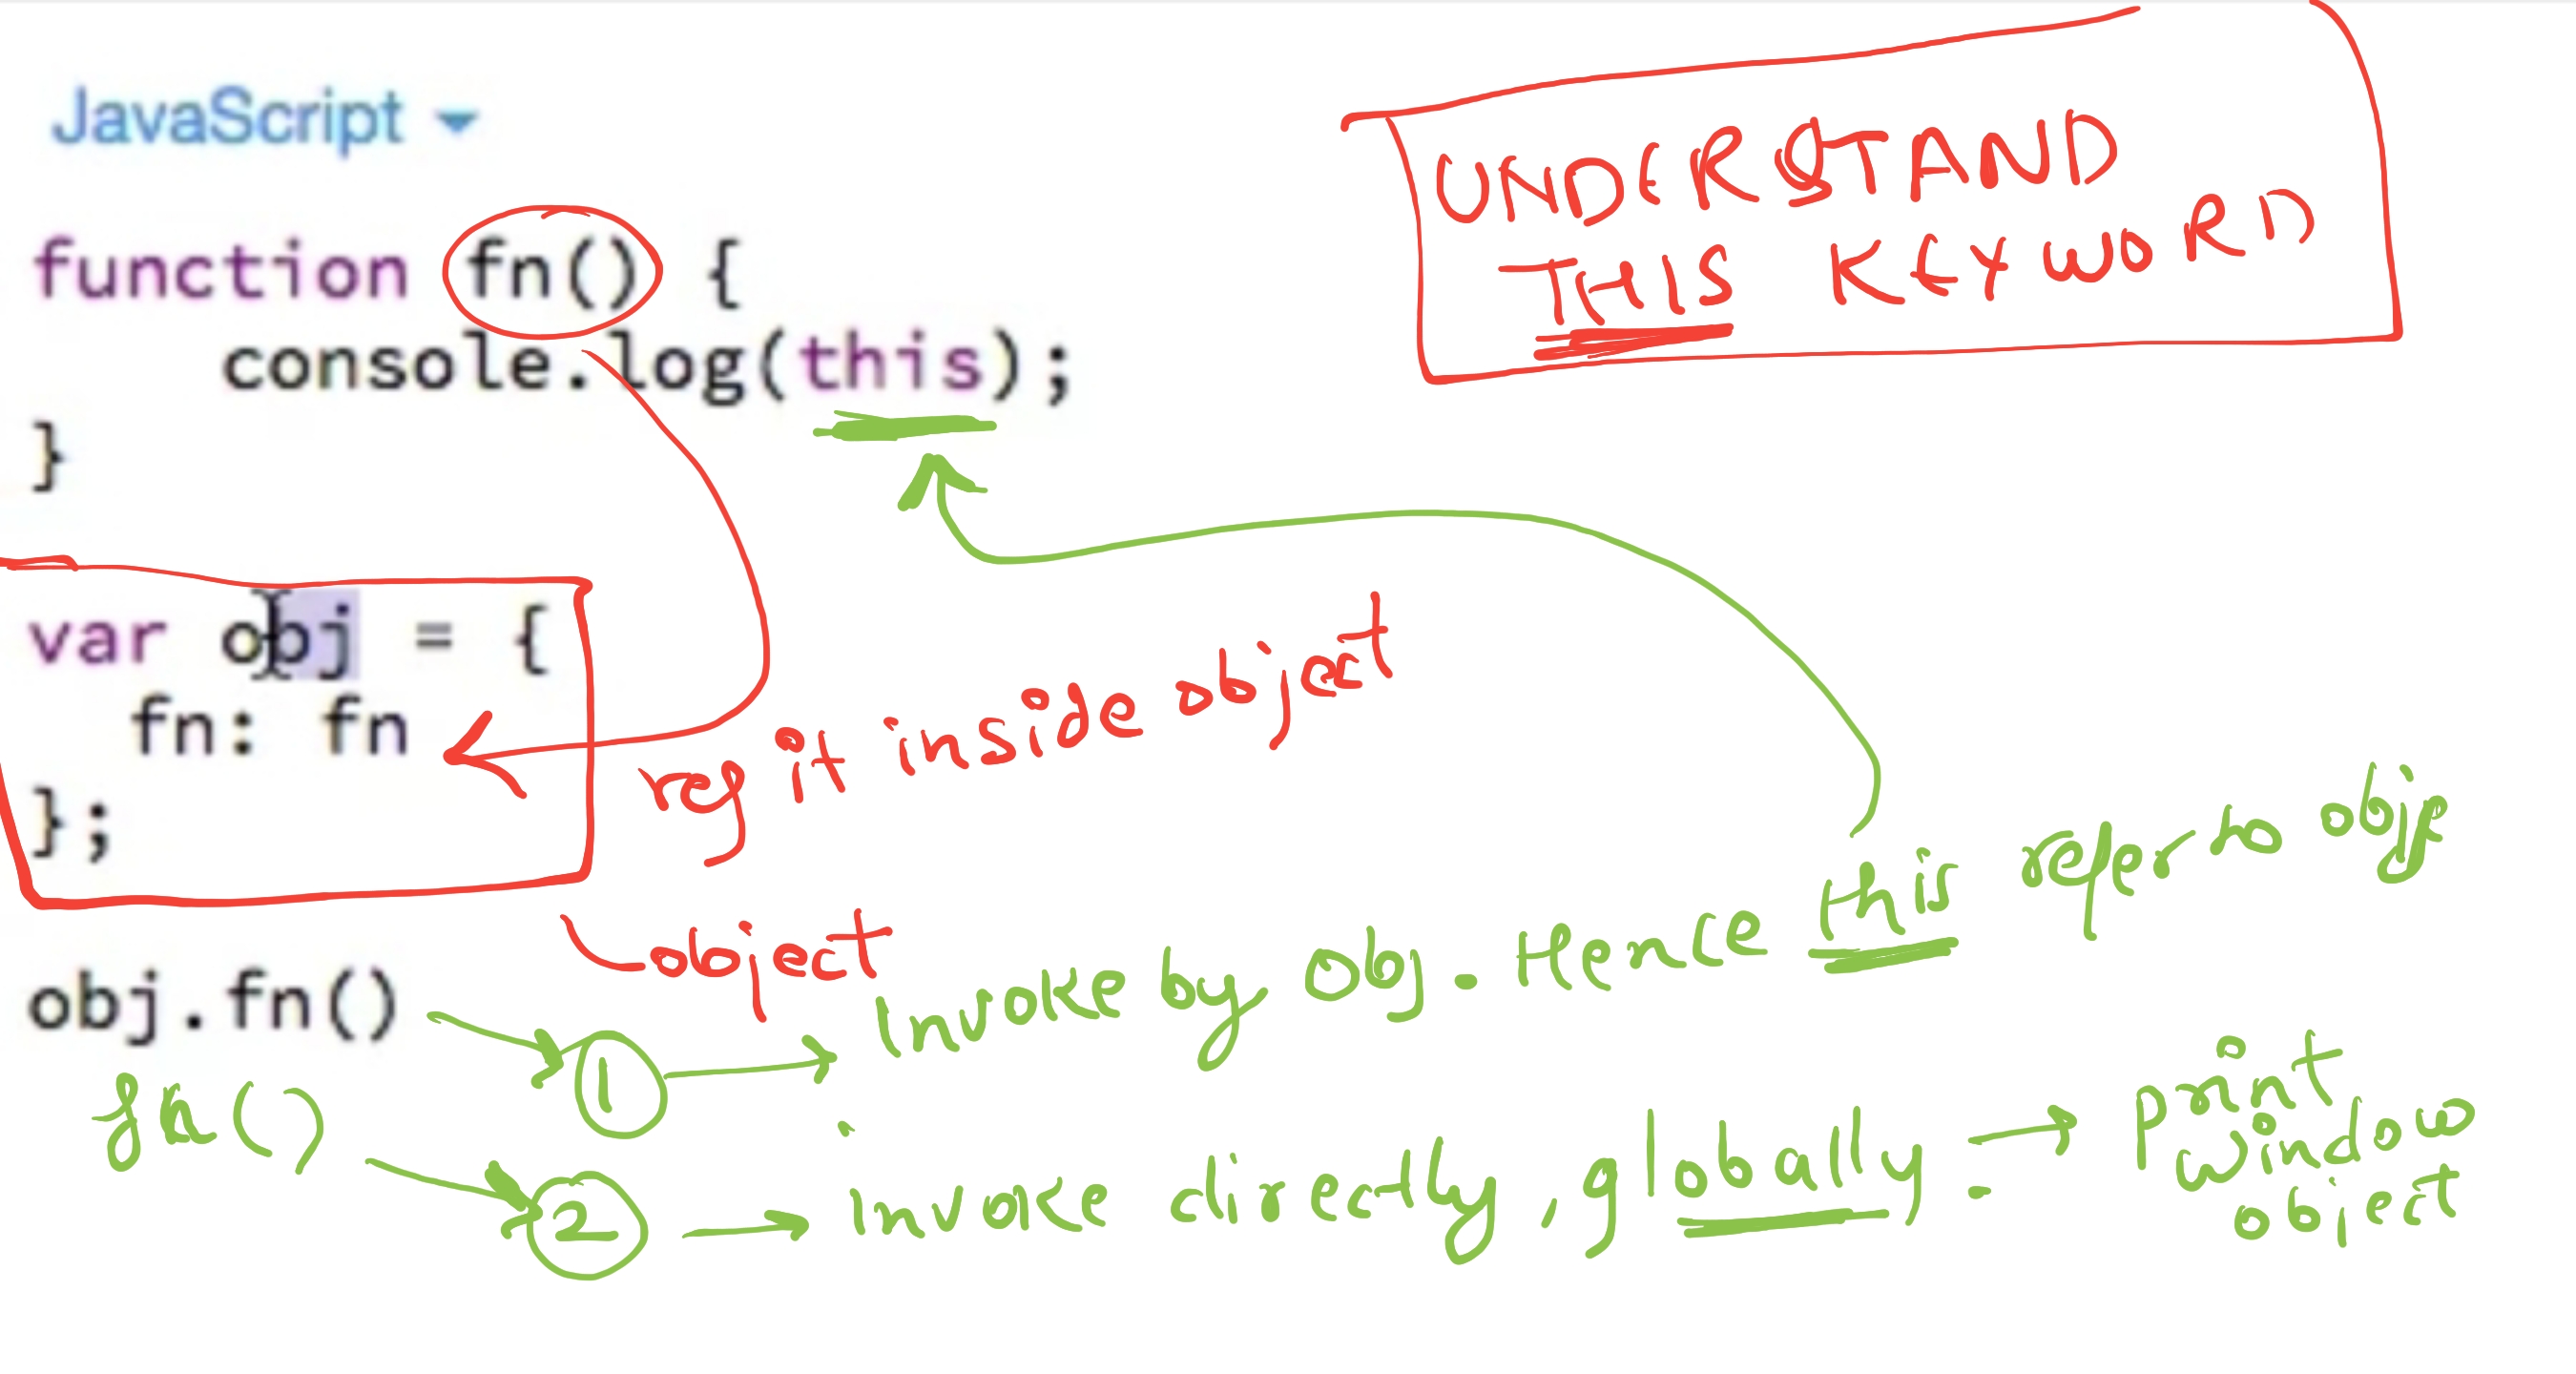 JavaScript
UNDERSTAND
THIS KEYWORD
function fn() {
console.log(this);
}
var obj = {
fn: fn
};
ref it inside object
object
obj.fn()
1
Invoke by Obj. Hence this refer to obj
fn()
2
invoke directly, globally.
print
window
object